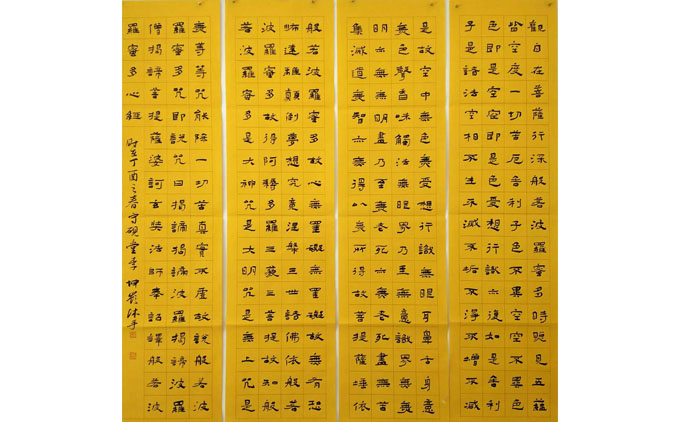 觀自在菩薩行深般若波羅蜜多時照見五蘊
皆空度一切苦厄舍利子色不異空空不異色
色即是空空即是色受想行識亦復如是舍利
子是諸法空相不生不滅不垢不淨不增不減
是故空中無色無受想行識無眼耳鼻舌身意
無色聲香味觸法無眼界乃至無意識界無無
明亦無無明盡乃至無老死亦無老死盡無苦
集滅道無智亦無得以無所得故菩提薩埵依
般若波羅蜜多故心無罣礙無罣礙故無有恐
怖遠離顛倒夢想究竟涅槃三世諸佛依般若
波羅蜜多故得阿耨多羅三藐三菩提故知般
若波羅蜜多是大神咒是大明咒是無上咒是
無等等咒能除一切苦真實不虛故說般若波
羅蜜多咒即說咒曰揭諦揭諦波羅揭諦波羅
僧揭諦菩提薩婆訶玄奘法師奉詔譯般若波
羅蜜多心經 時在丁酉之春守硯堂李坤嶺沐手